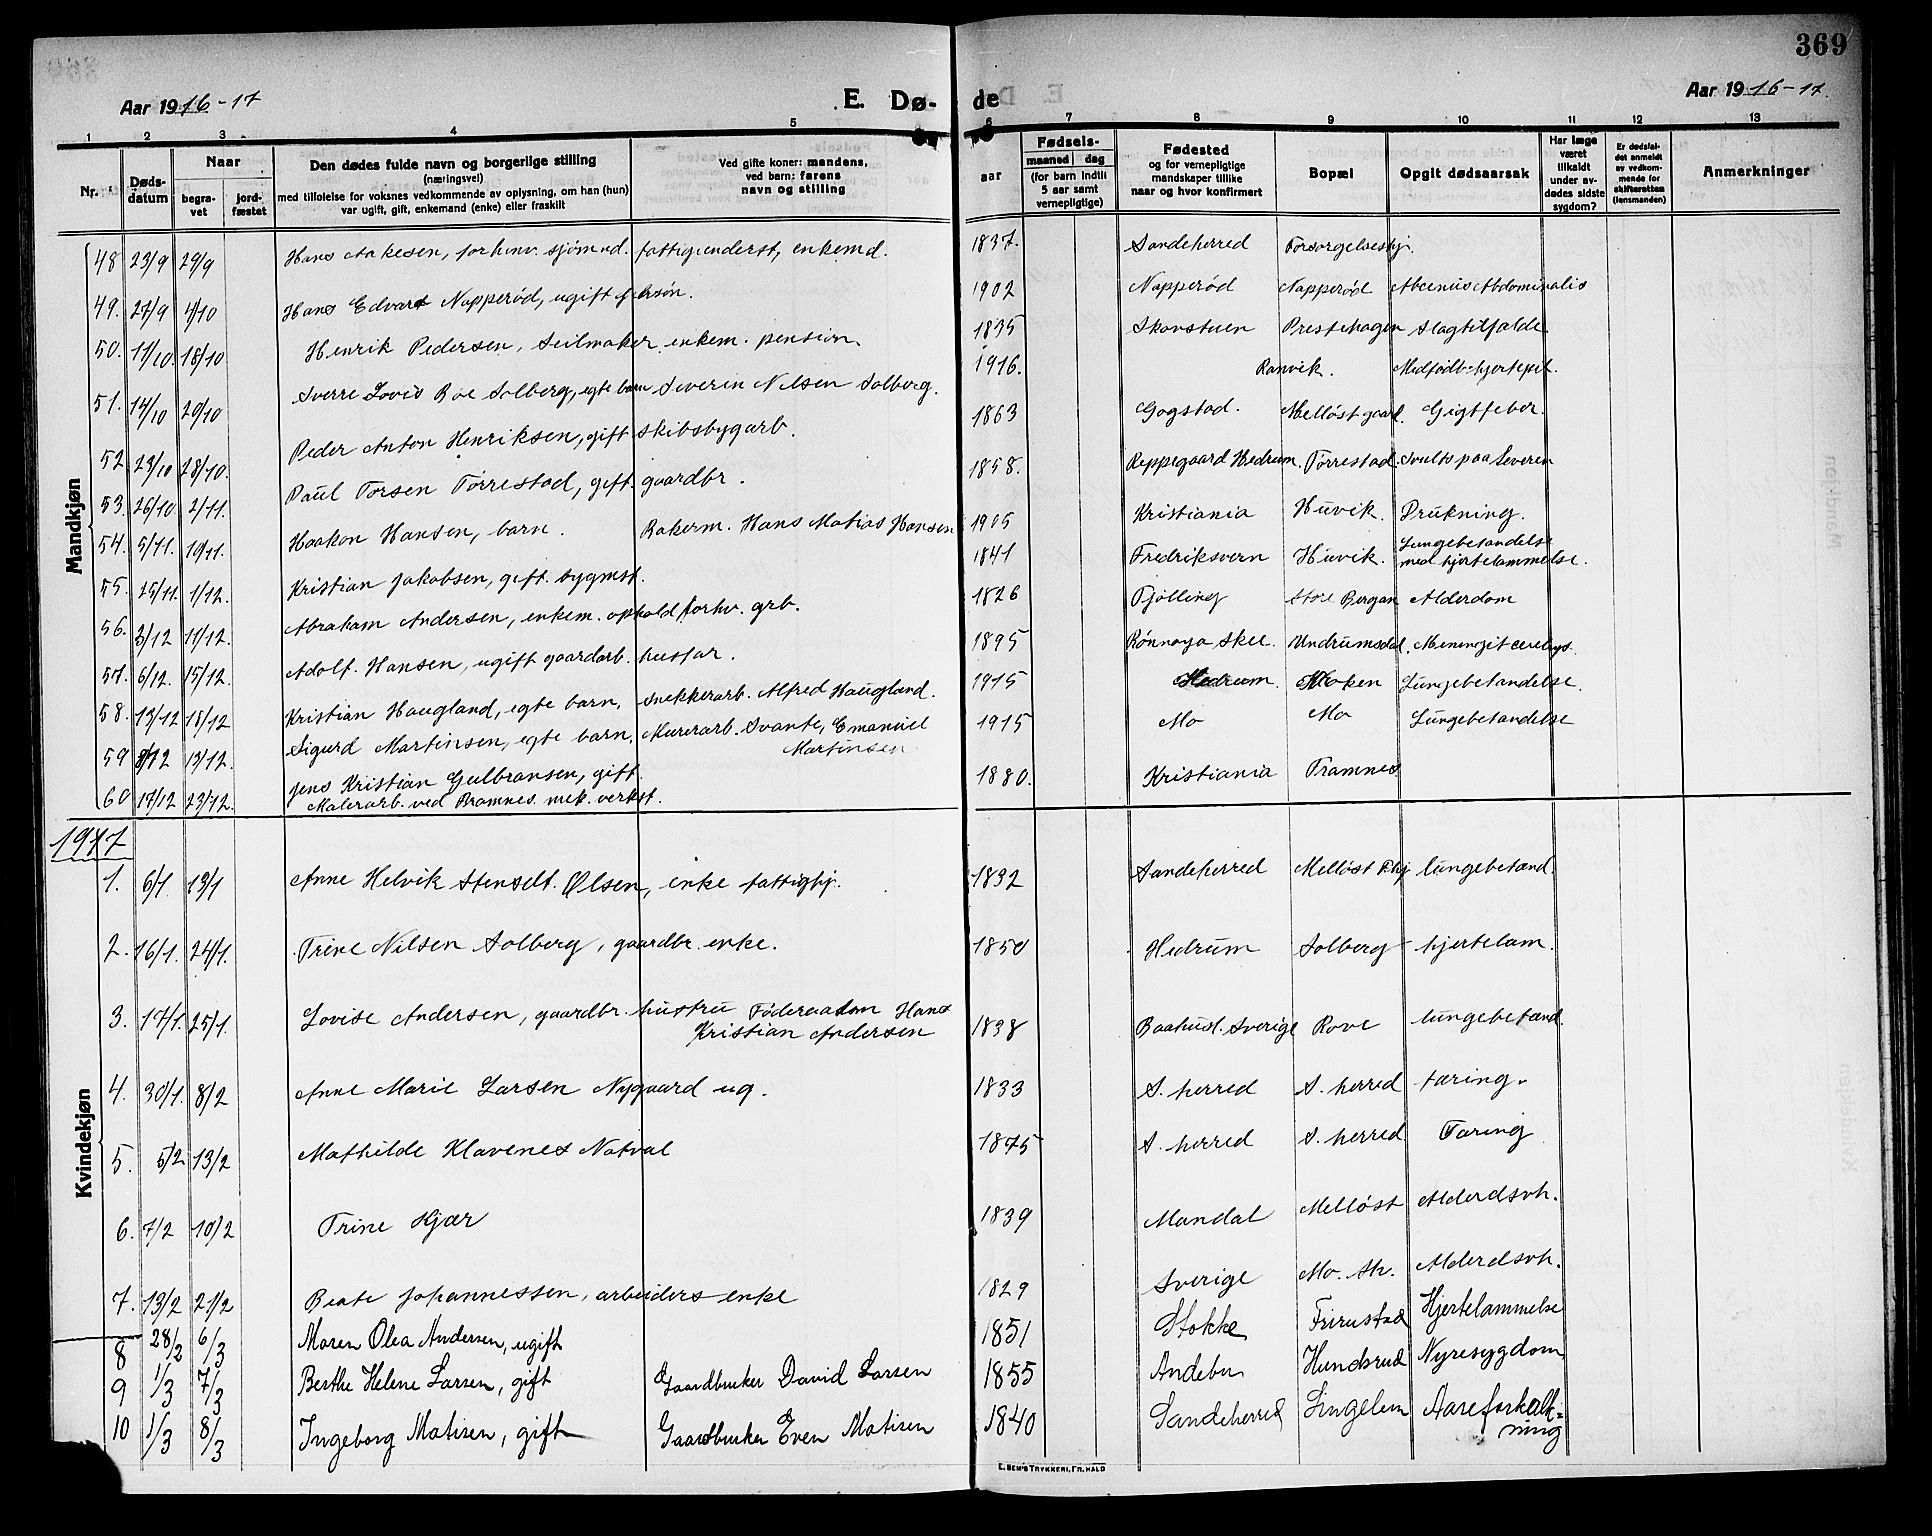 369
Aar 1916-17
E. Dø- de
Aar 1916-17.
1 2 3 4 5 6 7 8 9 10 11 12 13
Nr. Døds-datum Naar begra-vet jord-fæstet
Den dødes fulde navn og borgerlige stilling
(næringsvei)
med tilføielse for voksnes vedkommende av oplysning, om han (hun)
var ugift, gift, enkemand (enke) eller fraskilt
Ved gifte koner: mandens,
ved barn: farens
navn og stilling
aar
Fødsels-
maaned dag
(for barn indtil
5 aar samt
vernepligtige)
Fødested
og for vernepligtige
mandskaper tillike
naar og hvor konfirmert
Bopæl
Opgit dødsaarsak
Har læge
været
tilkaldt
under av-
dødes sidste
sygdom?
Er dødsfal-
det anmeldt
av vedkom-
mende for
skifteretten
(lensmanden)
Anmerkninger
Mandkjøn
48 23/9 29/9 Hans Aakesen, forhenv. sjømnd. fattigunderst, enkemd. 1837. Sandeherred Forsorgelseshj.
49. 27/9 4/10 Hans Edvart Napperød, ugift 1902 Napperød Napperød Abdominalis
50. 11/10 18/10 Henrik Pedersen, Seilmaker enkem. pension 1835 Skorstuen Prestehagen Slagtilfælde
51. 14/10 20/10 Sverre Lovis Boe Solberg, egte barn Severin Nilsen Solberg. 1916. Ranvik. Medfødt hjertefeil.
52 23/10 28/10. Peder Anton Henriksen, gift skibsbygarb. 1863 Gogstad. Melløst gaard. Gigtfeber.
53. 26/10 2/11. Paul Torsen Tørrestad, gift. gaardbr. 1858. Reppegaard Hedrum. Tørrestad. Svulst paa Leveren
54. 5/11. 10/11. Haakon Hansen, barn. Bakerm. Hans Matias Hansen 1905 Kristiania Huvik. Drukning.
55. 25/11. 1/12. Kristian Jakobsen, gift. bygmst. 1841 Fredriksvern Huvik. Lungebetændelse
med hjertelammelse.
56. 3/12 11/12. Abraham Andersen, enkem. ophold forhv. grb. 1826 Tjølling Store Bergan Alderdom
57. 6/12. 15/12. Adolf. Hansen, ugift gaardarb. husfar. 1895 Rønnøya Skee Undrumsdal. Meningit
58. 13/12 18/12 Kristian Haugland, egte barn, Snekkerarb. Alfred Haugland. 1915 Hedrum. Moken Lungebetændelse.
59 8/12 13/12. Sigurd Martinsen, egte barn. Murerarb. Svante, Emanuel
Martinsen 1915 Mo Mo Lungebetændelse
60 17/12 23/12. Jens Kristian Gulbransen, gift.
Malerarb. ved Framnes mek. verkst. 1880. Kristiania Framnes
1917
Kvindekjøn
1. 6/1. 13/1 Anne Helvik Stensdt. Olsen, enke fattighj. 1832 Sandeherred Melløst F.hj lungebetænd.
2. 16/1. 24/1. Trine Nilsen Solberg, gaardbr. enke. 1850 Hedrum Solberg hjertelam.
3. 17/1. 25/1. Lovise Andersen, gaardbr. hustru Føderaadsm Hans
Kristian Andersen 1838 Baahusl. Sverige Rove lungebetænd.
4. 30/1. 8/2 Anne Marie Larsen Nygaard ug. 1833 S. herred S. herred tæring.
5. 5/2 13/2 Mathilde Klavenes Natval 1875 S. herred S. herred Tæring
6. 7/2 10/2 Trine Kjær 1839 Mandal Melløst Alderdsvh.
7. 13/2 21/2 Beate Johannessen, arbeiders enke 1829 Sverige Mo. Sk. Alderdsvh.
8 28/2 6/3 Maren Olea Andersen, ugift 1851 Stokke Frirustad Hjertelammelse
9 1/3 7/3 Berthe Helene Larsen, gift Gaardbruker David Larsen 1855 Andebu Hundsrud Nyresygdom
10 1/3 8/3 Ingeborg Matisen, gift Gaardbruker Even Matisen 1840 Sandeherred Lingelem Aareforkalk-
ning
E. SEM'S TRYKKERI, FR.HALD